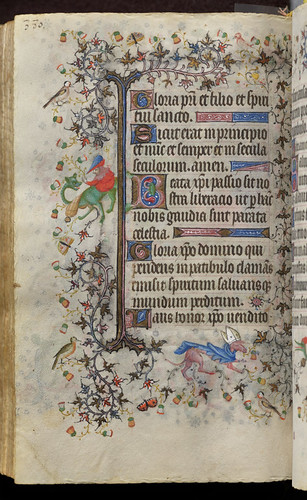 330
Gloria pri et filio et spiri
tui sancto.
Sicut erat in principio
et nūc et semper et in secula
seculorum. amen.
Beata xpi passio sit no
stra liberacio ut p hāc
nobis gaudia sint parata
celestia.
Gloria xpo domino qui
pendens in patibulo clamās
emisit spiritum saluans q̄
mundum perditum.
Laus honor xpo uendito